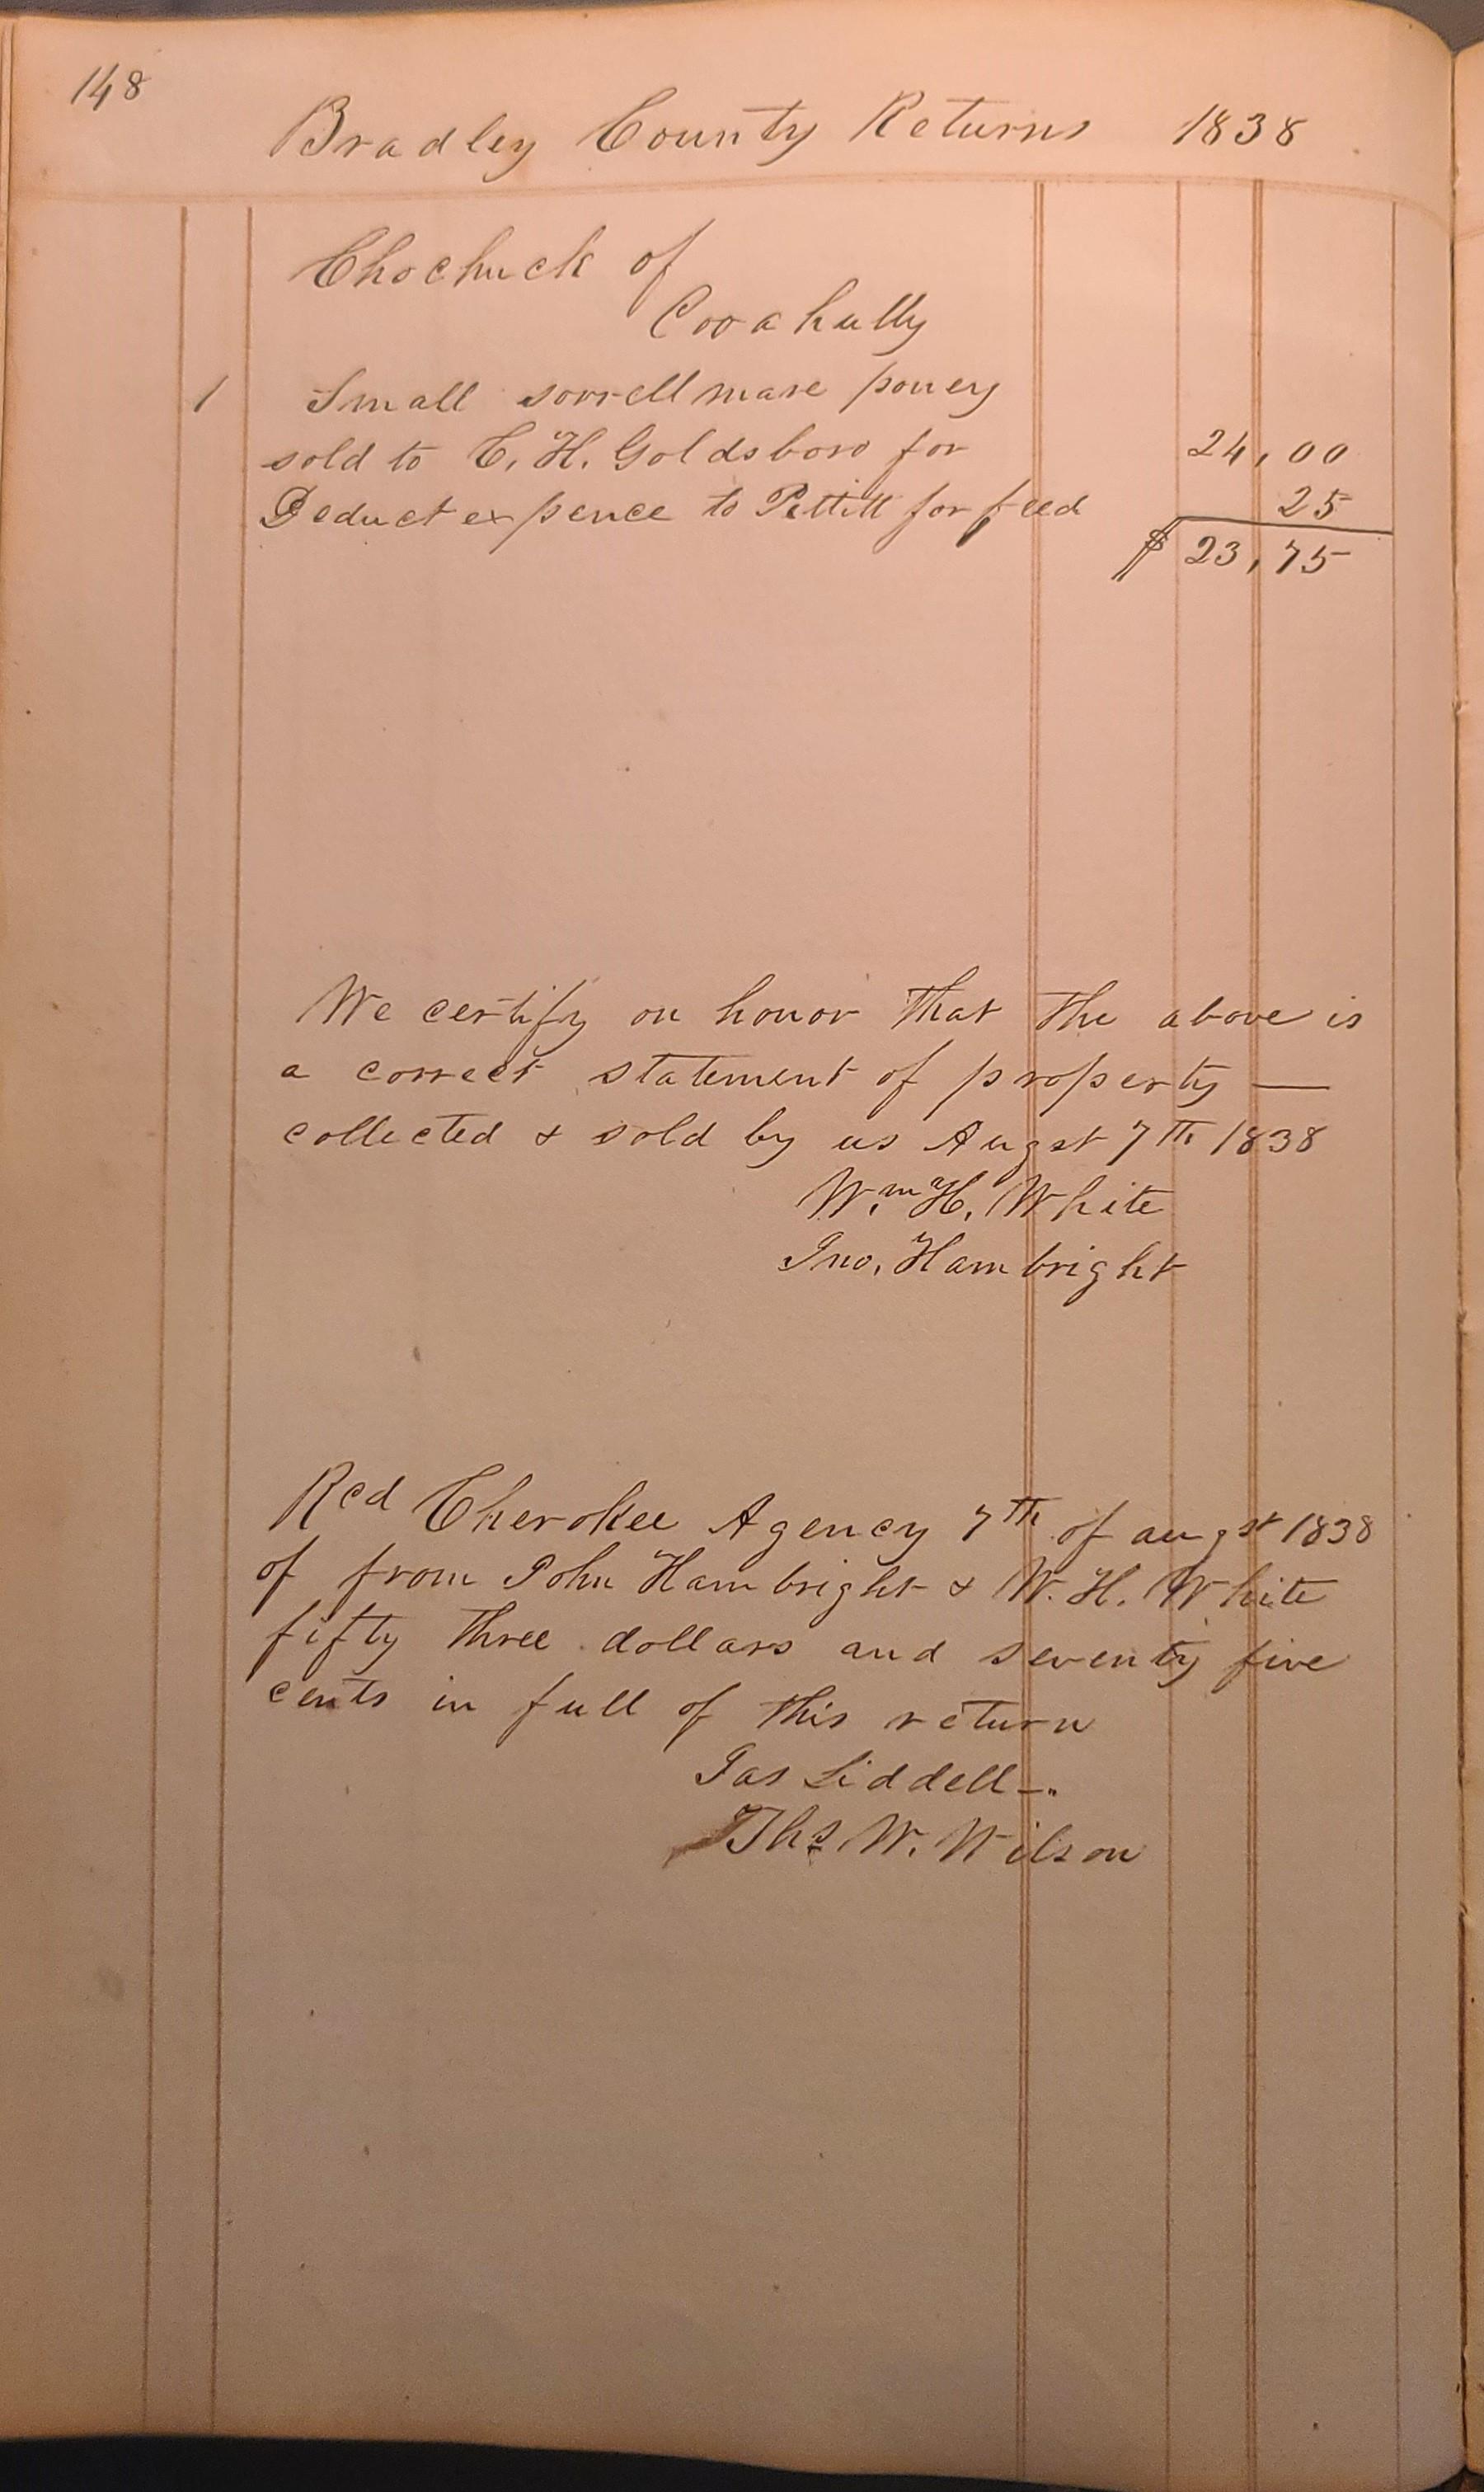 148
Bradley County Returns 1838
Chochuck of
Cooahully
1 Small sorrell mare poney
sold to C. H. Goldsboro for 24,00
Deduct expence to Pettitt for feed 25
$ 23,75
We certify on honor that the above is
a correct statement of property —
collected & sold by us Augst 7th 1838
Wm. H. White
Jno. Hambright
Rcd Cherokee Agency 7th of augst 1838
of from John Hambright & W. H. White
fifty three dollars and seventy five
cents in full of this return
Jas Liddell —
Ths W. Wilson